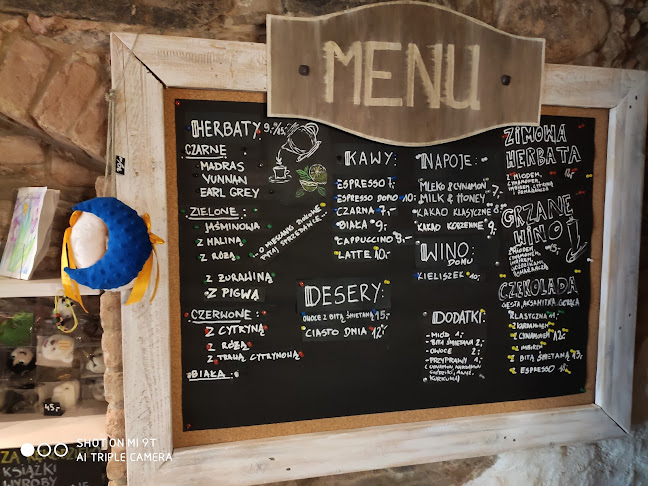 MENU
HERBATY:
CZARNE
MADRAS
YUNNAN
EARL GREY
ZIELONE:
JAŚMINOWA
Z MALINĄ
Z RÓŻĄ
Z ŻURAWINĄ
Z PIGWĄ
O MIESZANKI ZIOŁOWE
PYTAJ SPRZEDAWCĘ...
CZERWONE:
Z CYTRYNĄ
Z RÓŻĄ
Z TRAWĄ CYTRYNOWĄ
BIAŁA:
KAWY:
ESPRESSO 7,-
ESPRESSO DOPIO 10,-
CZARNA 7,-
BIAŁA 9,-
CAPPUCCINO 9,-
LATTE 10,-
DESERY:
OWOCE Z BITĄ ŚMIETANĄ 15,-
CIASTO DNIA 12,-
NAPOJE:
MLEKO & CYNAMON
MILK & HONEY 7,-
KAKAO KLASYCZNE 8,-
KAKAO KORZENNE 9,-
WINO:
DOMU
KIELISZEK 10,-
DODATKI:
- MIÓD 1,-
- BITA ŚMIETANA 2,-
- OWOCE 2,-
- PRZYPRAWY 1,-
(CYNAMON, KARDAMON,
GOŹDZIKI, ANYŻ,
KURKUMA)
ZIMOWA
HERBATA
Z MIODEM,
CYNAMONEM,
IMBIREM, CYTRYNĄ
POMARAŃCZĄ
GRZANE
WINO
Z MIODEM,
CYNAMONEM,
IMBIREM,
GOŹDZIKAMI,
POMARAŃCZĄ
CZEKOLADA
GĘSTA, AKSAMITNA, GORĄCA
KLASYCZNA
Z KARDAMONEM
Z CYNAMONEM 12,-
Z IMBIREM
Z BITĄ ŚMIETANĄ 13,-
Z ESPRESSO
45,-
KSIĄŻKI
WYROBY
SHOT ON MI 9T
AI TRIPLE CAMERA